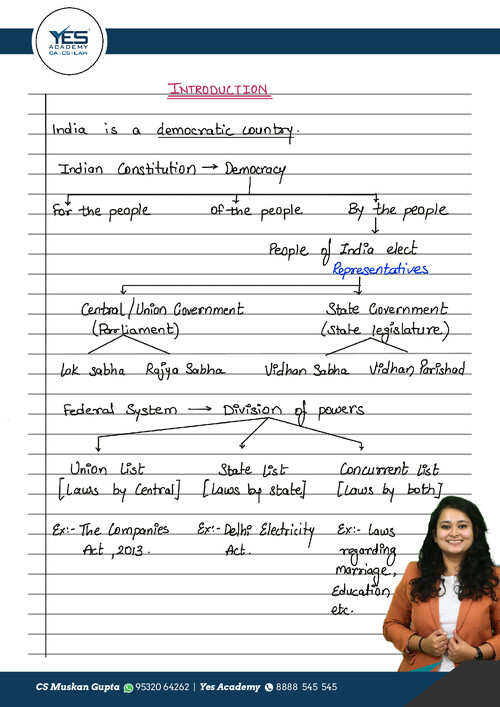 YES
ACADEMY
CA|CS|LAW
INTRODUCTION
India is a democratic country.
Indian Constitution → Democracy
For the people of the people By the people
People of India elect
Representatives
Central/Union Government State Government
(Parliament) (State legislature)
Lok Sabha Rajya Sabha Vidhan Sabha Vidhan Parishad
Federal System → Division of powers
Union List State List Concurrent List
[Laws by Central] [Laws by State] [Laws by both]
Ex:- The Companies Ex:- Delhi Electricity Ex:- Laws
Act, 2013. Act. regarding
marriage,
Education
etc.
CS Muskan Gupta 95320 64262 | Yes Academy 8888 545 545